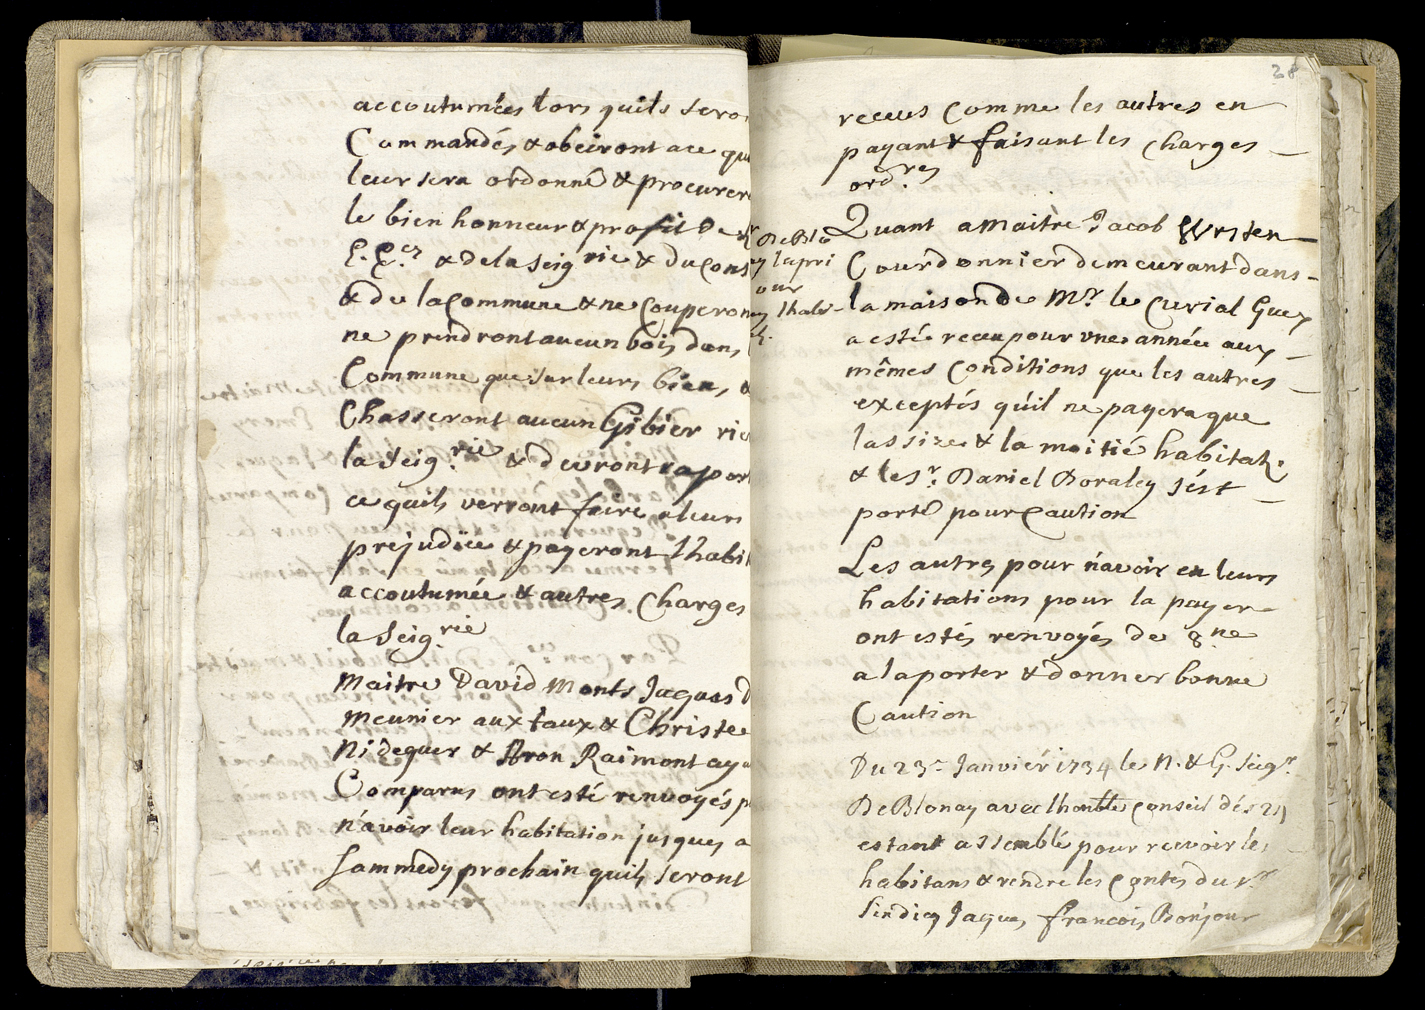 accoutumées lors quils sero
Commandés & obeiront a ce qu
leur sera ordonné & procurer
le bien honneur & profit de
E. E.ces & de la Seigrie & du Cons
& de la Commune & ne Couperon
ne prendront aucun bois dans
Commune que sur leurs biens &
Chasseront aucun Gibier
la Seig.rie & devront rapor
ce quils verront faire a leurs
prejudice & payeront l'habit
accoutumée & autres Charges
la Seig.rie
Maitre David Monts Jaques
Meunier aux faux & Christe
Nideguer & Aron Raimont ay
Comparus ont esté renvoyés p
n'avoir leur habitation jusques a
Sammedy prochain quils seront
28
receus Comme les autres en
payant & faisant les charges
ord.res
Quant a Maitre Jacob Wrsten
Courdonnier demeurant dans
la maison de Mr. le Curial Guex
a esté receu pour une année aux
mêmes Conditions que les autres
exceptés qu'il ne payera que
lassize & la moitié habitat.
& le Sr. Daniel Boraley s'est
porté pour Caution
Les autres pour n'avoir eu leurs
habitations pour la payer
ont estés renvoyés de 8.ne
a la porter & donner bonne
Caution
Du 23e Janvier 1734 le N. & G. Seigr.
De Blonay avec lhonble Conseil dés 21
estant assemblé pour recevoir les
habitans & rendre les Contes du Sr.
Sindicq Jaques francois Bonjour